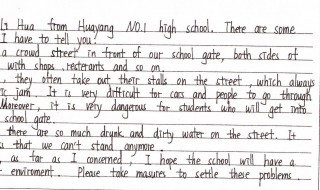 Li Hua from Huayang NO.1 high school. There are some
I have to tell you!
a crowd street in front of our school gate, both sides of
with shops, resterants and so on.
, they often take out their stalls on the street, which always
ic jam. It is very difficult for cars and people to go through
Moreover, it is very dangerous for students who will get into
school gate.
there are so much drunk and dirty water on the street. It
s that, we can't stand anymore.
, as far as I concerned, I hope the school will have a
enviroment. Please take masures to settle these problems.